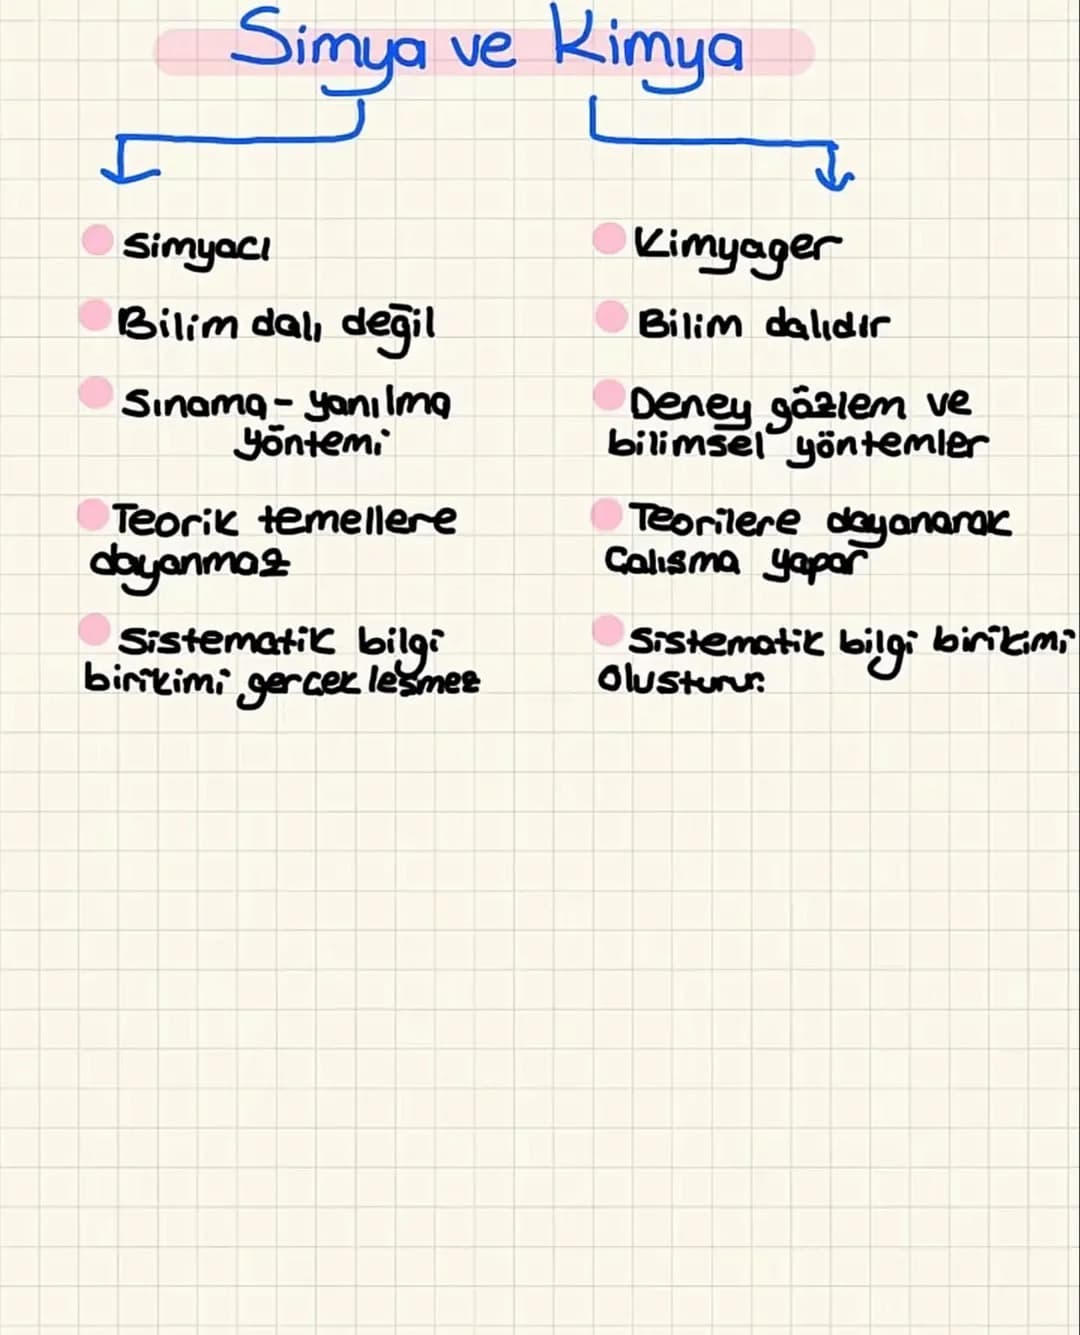 Simya ve Kimya
Simyacı
Bilim dalı değil
Sınama - yanılma
yöntemi
Teorik temellere
dayanmaz
Sistematik bilgi
birikimi gercekleşmez
Kimyager
Bilim dalıdır
Deney gözlem ve
bilimsel yöntemler
Teorilere dayanarak
Calısma yapar
Sistematik bilgi birikimi
Olusturur.